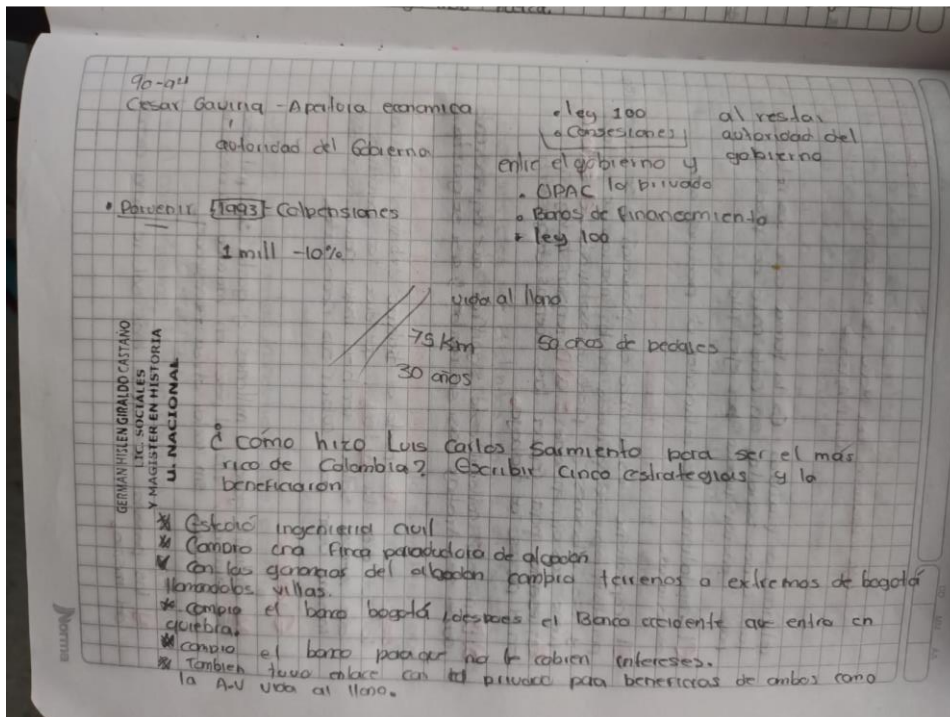 90-94
Cesar Gaviria - Apertura economica
autoridad del Gobierno
• ley 100
• Consesiones
entre el gobierno y
lo privado
al restar
autoridad del
gobierno
• UPAC
• Banos de financamiento
• ley 100
• Porvenir [1993] Colpensiones
1 mill - 10%
vida al llano
75 Km
30 años
50 años de pedajes
GERMAN HISLEN GIRALDO CASTAÑO
LIC. SOCIALES
Y MAGISTER EN HISTORIA
U. NACIONAL
¿ como hizo Luis Carlos Sarmiento para ser el más
rico de Colombia? Escribir cinco estrategias y la
beneficiaron
* Estudió ingenieria civil
* Compro una finca
* Con las ganancias del compro terrenos a extremos de bogotá
llamandolos villas.
* compro el banco bogotá, despues el Banco occidente que entro en
quiebra.
* compro el banco no le cobren intereses.
* Tambien tuvo enlace con privado para beneficios de ambos como
la A-V vida al llano.
Norma